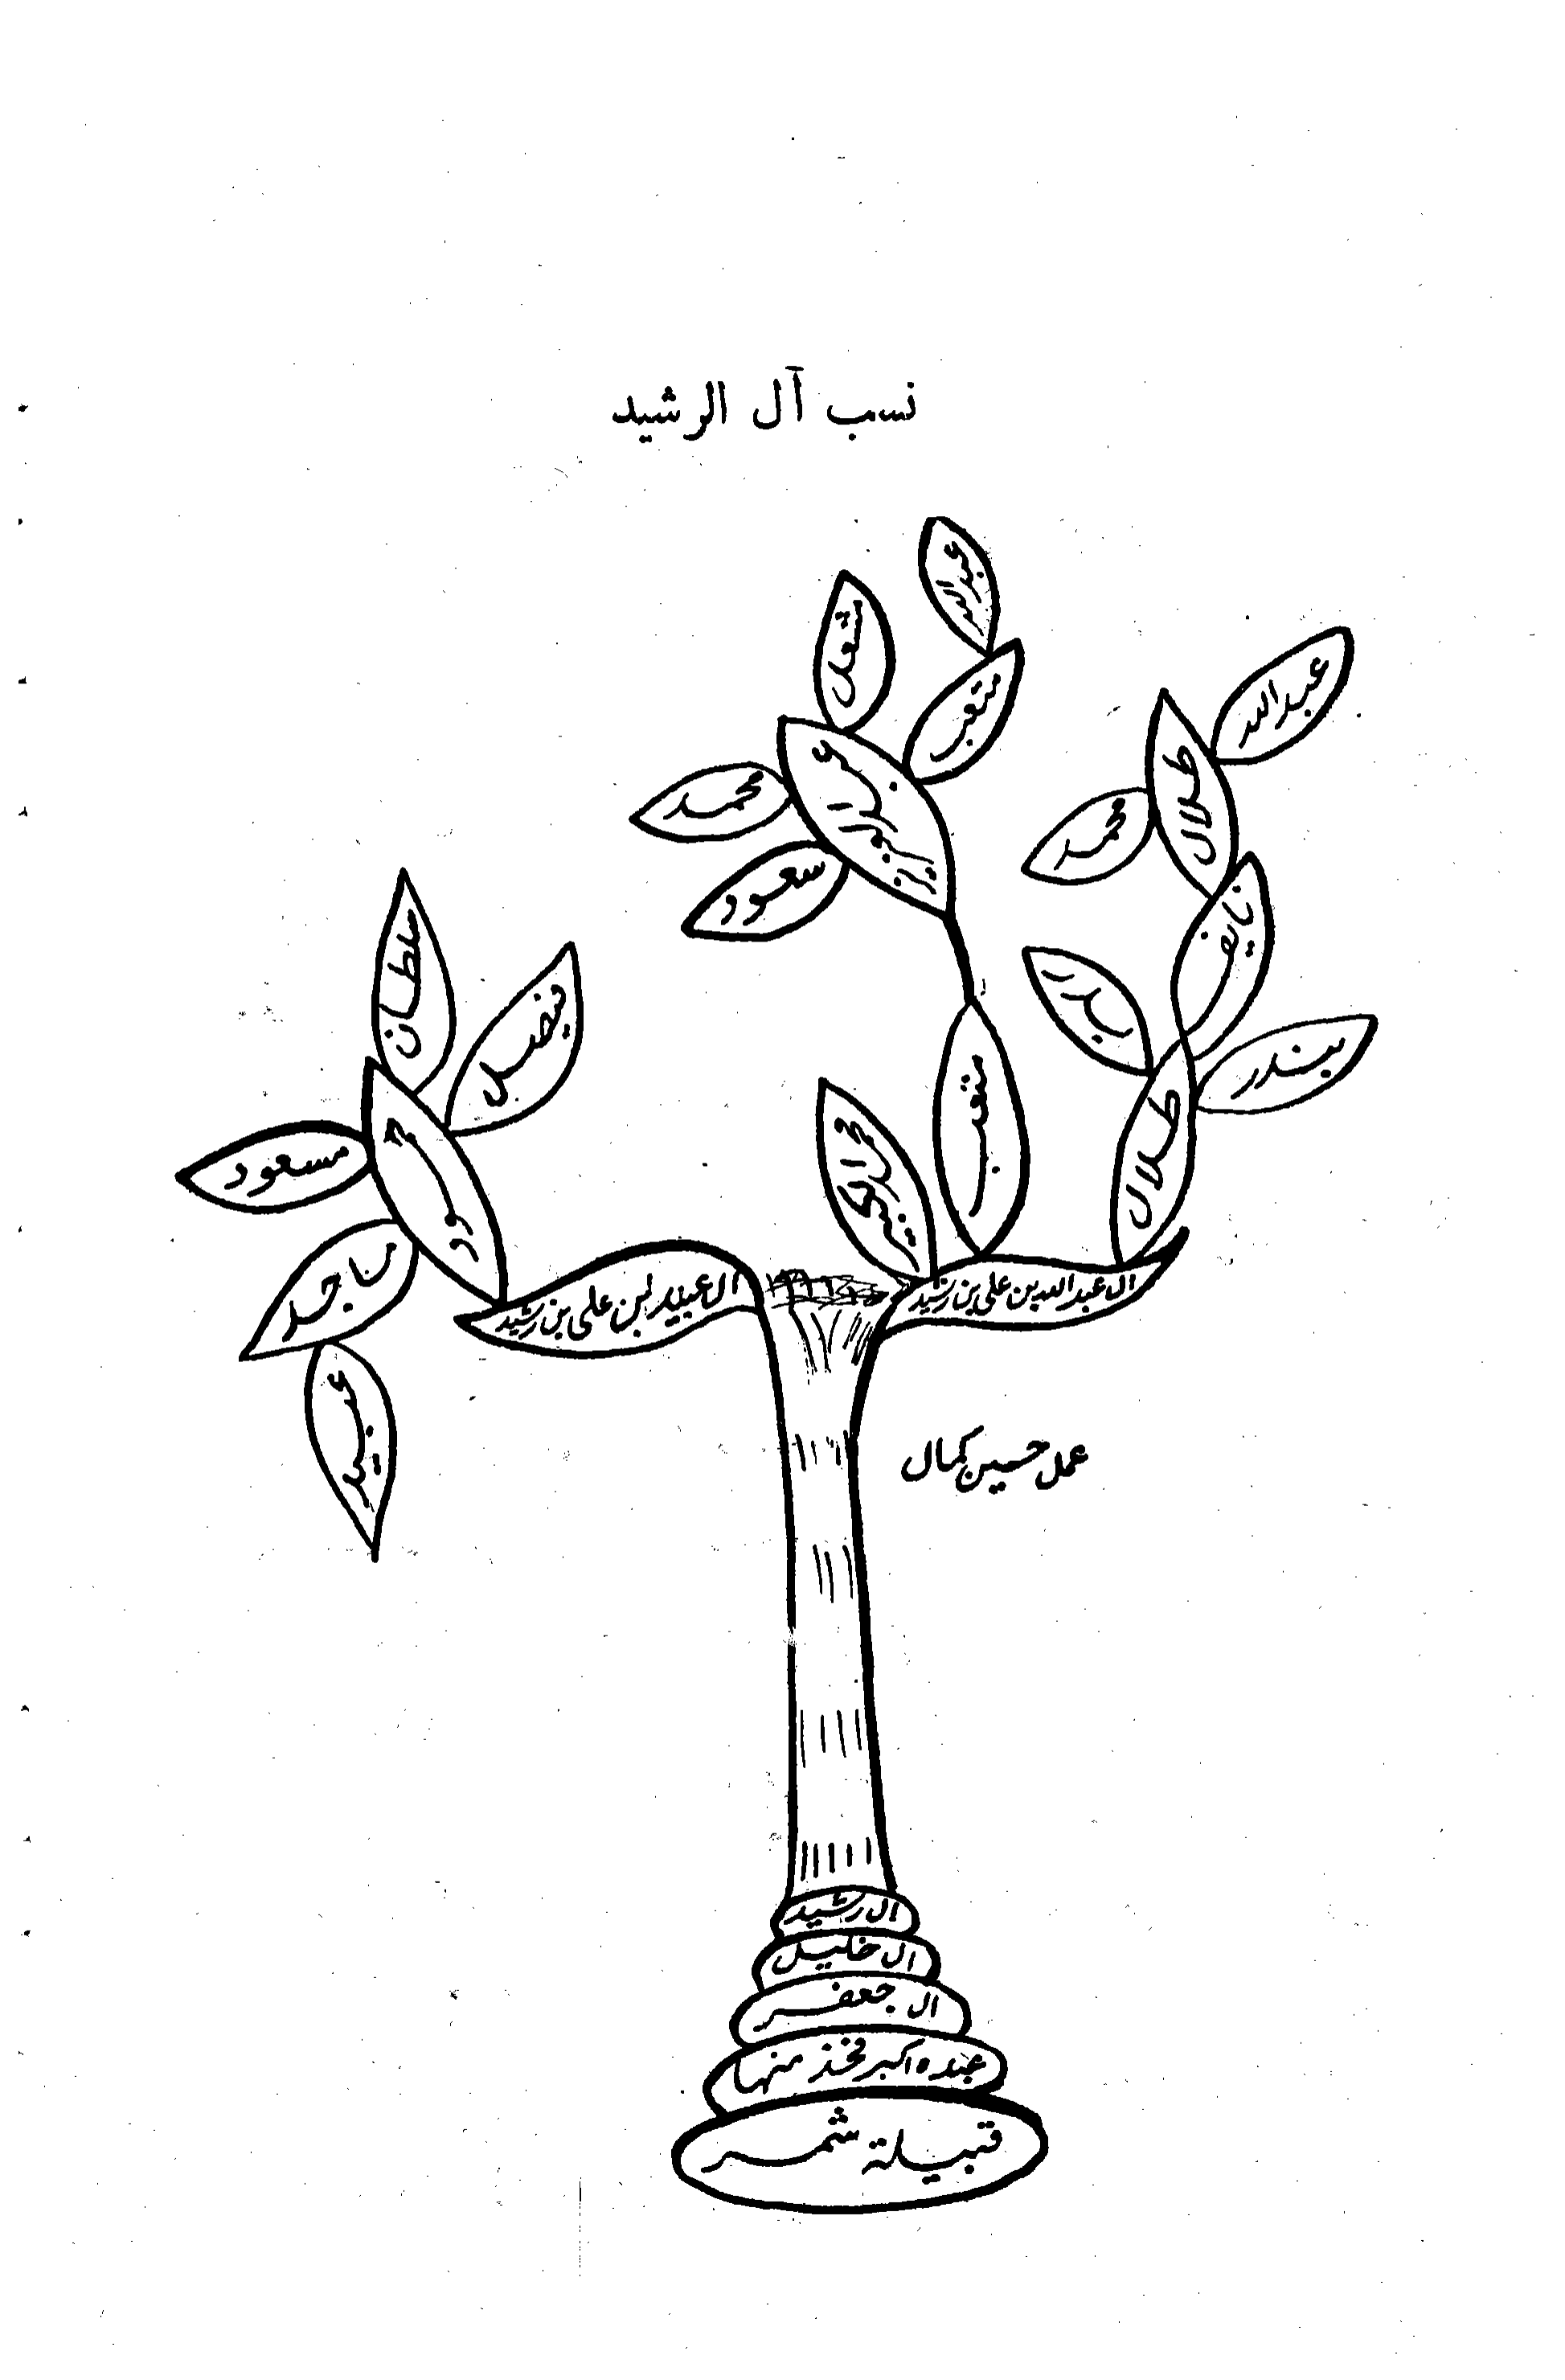 نسب آل الرشيد
عبدالله
مشعل
متعب
عبد العزيز
محمد
سعود
عبدالله
طلال
محمد
نايف
بدر
بندر
طلال
متعب
محمد الكبير
سلطان
فيصل
حمود
مسعود
ماجد
عبيد
ال عبيد بن علي بن رشيد
ال عبدالله بن علي بن رشيد
عمل حسين كمال
ال رشيد
ال خليل
ال جعفر
عبده اكبر فخذ منها
قبيلة شمر